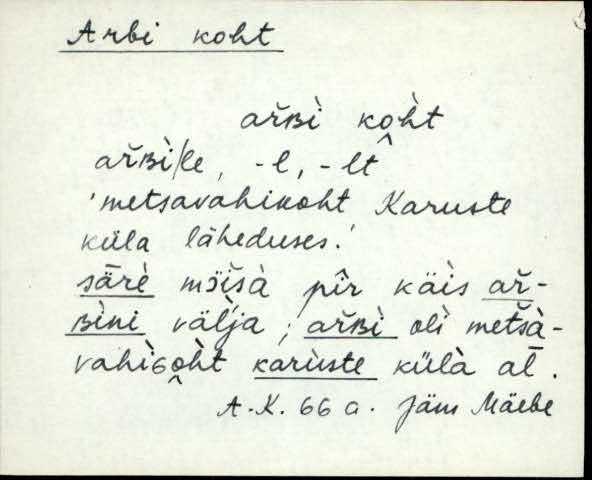 Arbi koht
ař̀ʙì ko͔h̀t
ařʙì/le, -l, -lt
'metsavahikoht Karuste
küla läheduses.'
sāre̊̀ mɔ̄ìšà pīr käìs ař-
ʙìni väĺja; ařʙì olì metšà-
vahìɢo͔h̀t karùste külà al̄.
A.K. 66 a. Jäm Mäebe